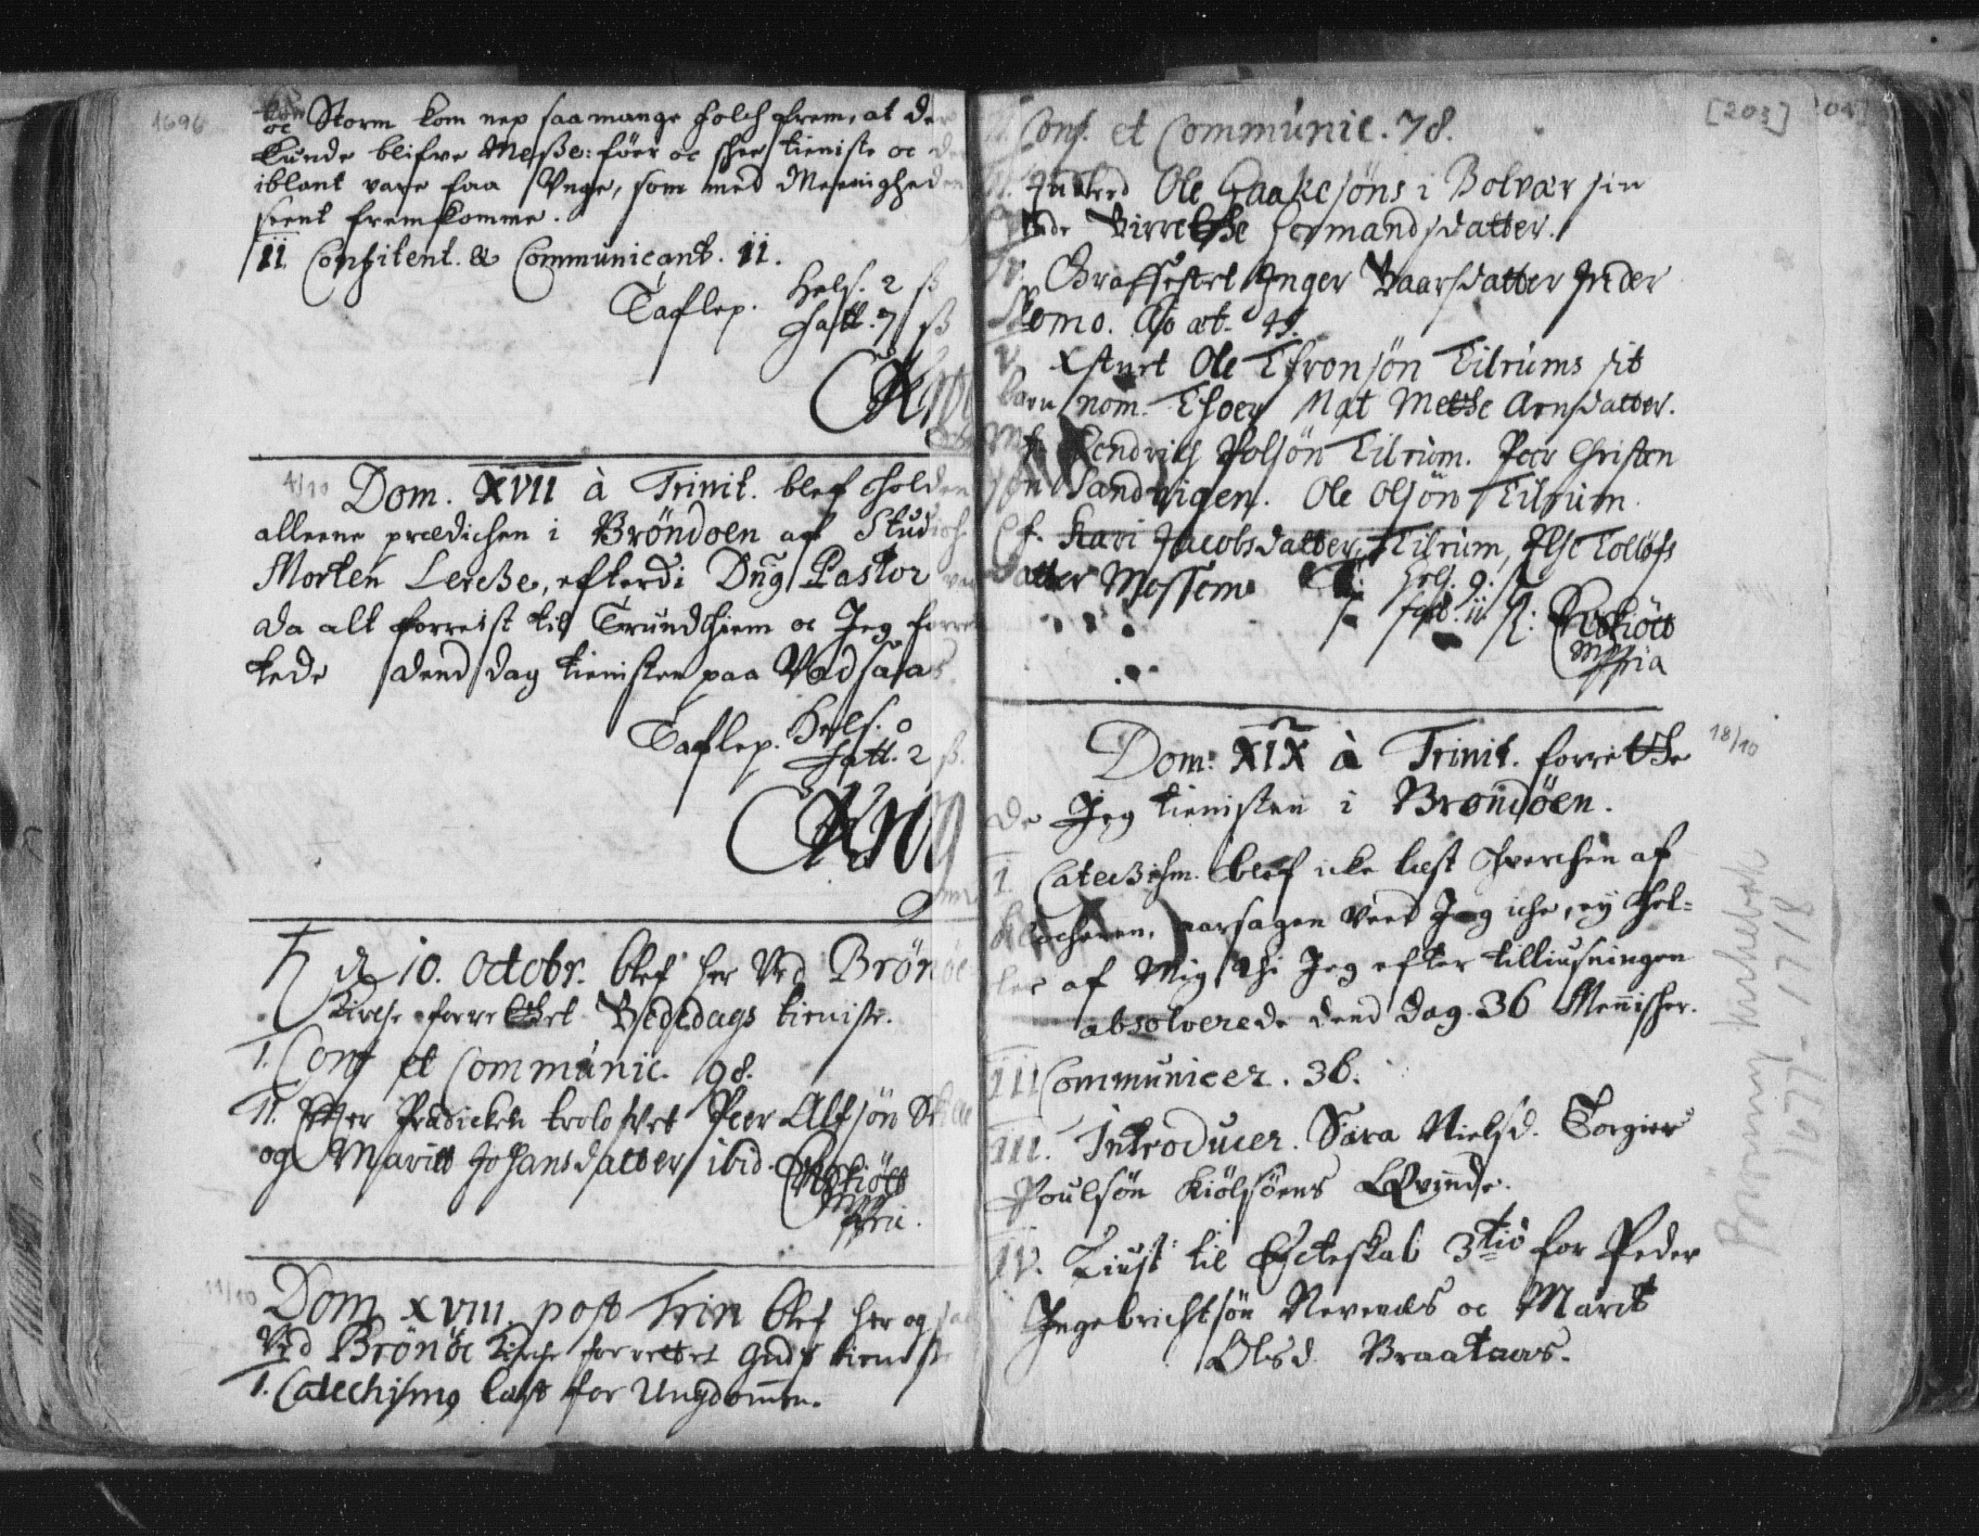 1696
oc Storm kom nep saa mange folch frem, at der
kunde blifve Messe: föer oc scheer tieniste oc
iblant vare faa Unge, som med Meenigheden
seent fremkomme.
II. Confitent. & Communicant. 11.
Taflep. Hels. 2 ß
fatt. 7 ß
4/10 Dom. XVII à Trinit. blef holden
alleene prædichen i Bröndoen af Studios.
Morten Lerche, efterdi Dn9 Pastor
da alt forreist til Trundhiem oc Jeg forret
tede dend dag tienisten paa Vadsaas.
Taflep. Hels. 0
fatt. 2 ß.
♄ d 10. Octobr. blef her Ved Brönöe
Kirche forrettet Bededags tieniste.
I. Conf et Communic. 98.
II. Efter Prædicken trolofvet Peer Alfsön
og Maritt Johansdatter ibid.
mppria.
11/10
Dom XVIII. post Trin blef her og
Ved Brönöe Kirche forrettet Guds tieniste
I. Catechism9 læst for Ungdommen.
[203]
Conf. et Communic. 78.
Indleed Ole Haakesöns i Bolvær sin
Birrethe Hermandsdatter.
IV. Graffestet Inger Baarsdatter Inder
Skomo. Ao æt. 45.
V. Xstnet Ole Efronsön Tilrums sit
barn nom. Thoer Mat Methe Arnsdatter.
Mf. Hendrich Polsön Tilrum. Peer Christen
sön Sandvigen. Ole Olsön Tilrum.
Qf. Kari Jacobsdatter, Tilrum, Else Tollofs
datter Mossem Hels. 9. ß
fatt. 11 ß:
mppria
Dom: XIX à Trinit. forrette 18/10
de Jeg tienisten i Bröndöen.
I. Catechism. blef icke læst hverchen af
Klocheren, aarsagen veed Jeg iche, ey hel=
ler af Mig, thi Jeg efter tilliusningen
absolverede dend dag 36 Mennischer.
III Communicer. 36.
III. Introducer. Sara Nielsd. Torgier
Poulsön Kiölsöens Qvinde.
IV. Liust til Ecteskab 3tio for Peder
Ingebrichtsön Nevenæs oc Marit
Olsd. Braataas.
Brønnøy kirkebok
1677-1718